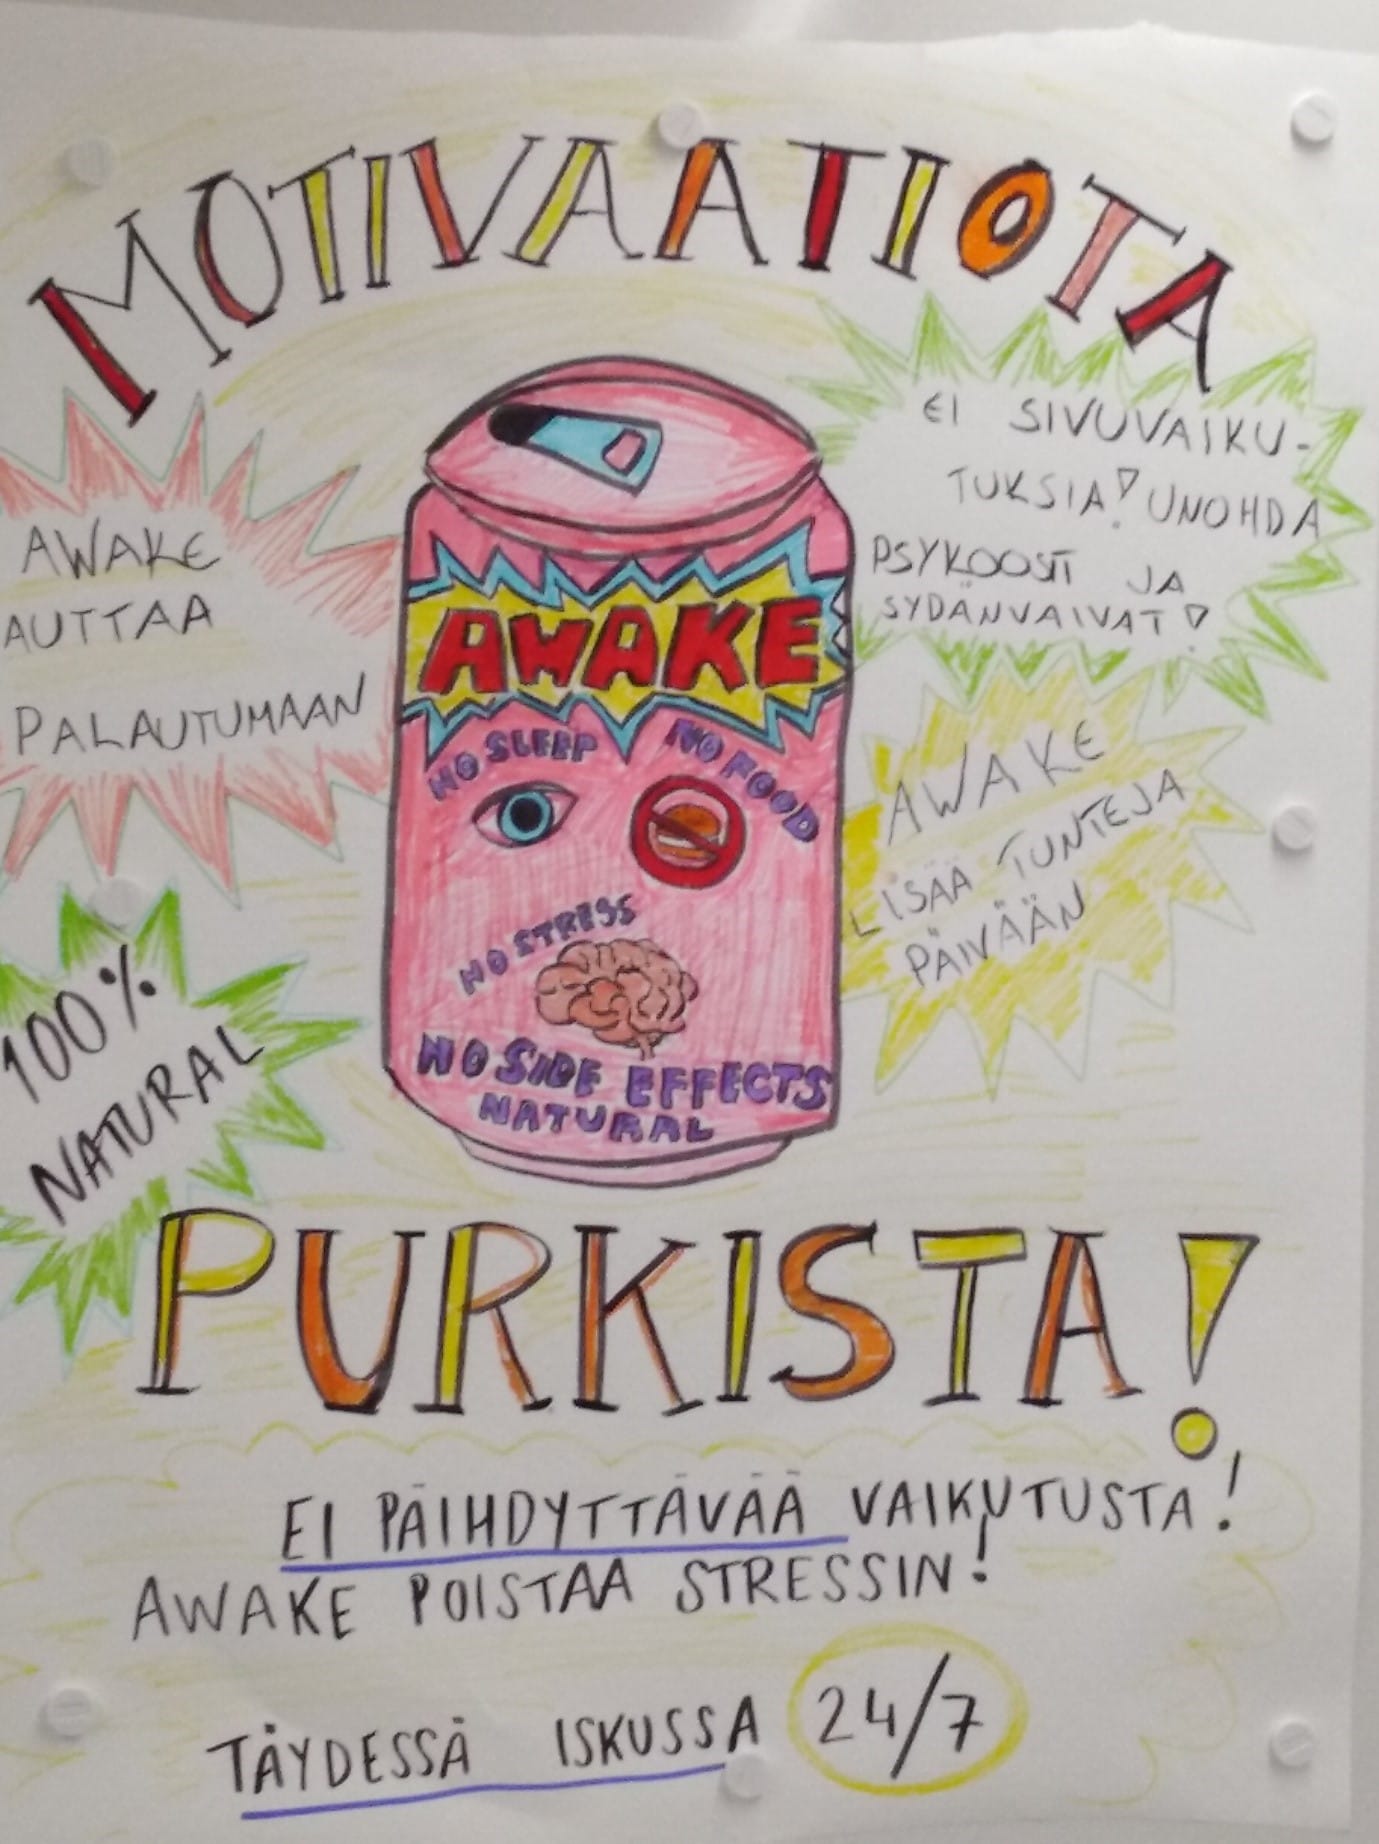 MOTIVAATIOTA
EI SIVUVAIKU-
TUKSIA! UNOHDA
PSYKOOSIT JA
SYDÄNVAIVAT!
AWAKE
AUTTAA
PALAUTUMAAN
AWAKE
NO SLEEP
NO FOOD
NO STRESS
NO SIDE EFFECTS
NATURAL
AWAKE
LISÄÄ TUNTEJA
PÄIVÄÄN
100%
NATURAL
PURKISTA!
EI PÄIHDYTTÄVÄÄ VAIKUTUSTA!
AWAKE POISTAA STRESSIN!
TÄYDESSÄ ISKUSSA 24/7